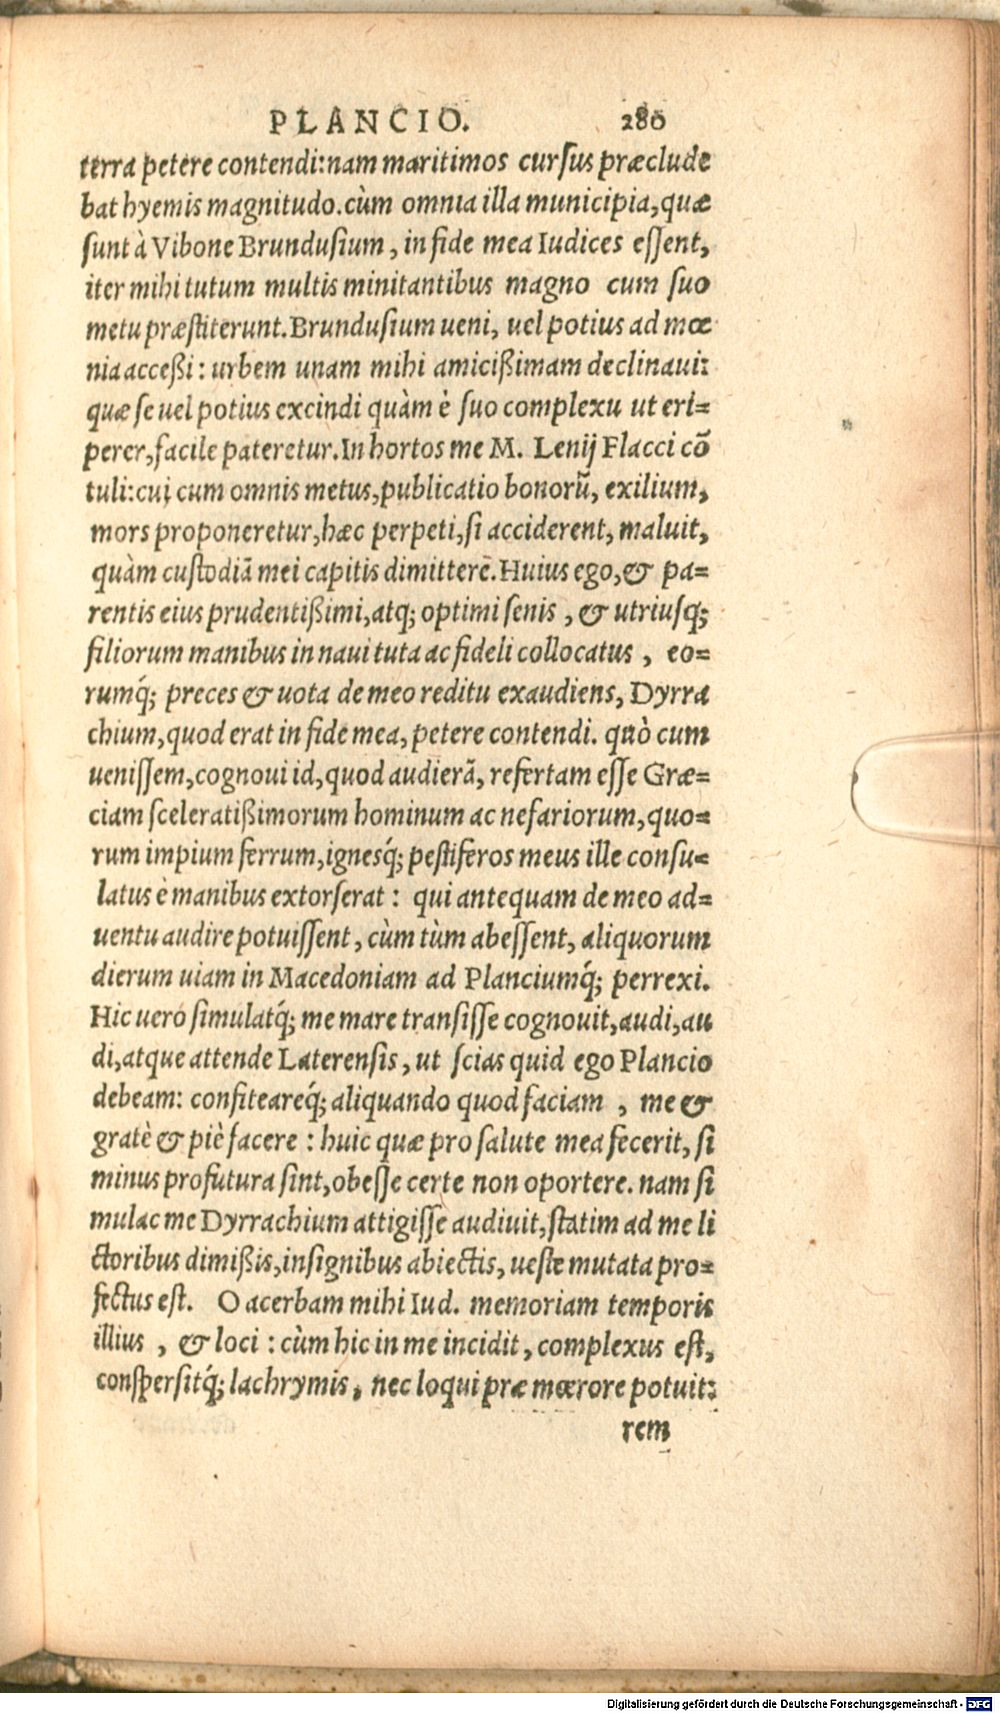 PLANCIO. 280
terra petere contendi: nam maritimos cursus præclude
bat hyemis magnitudo. cùm omnia illa municipia, quæ
sunt à Vibone Brundusium, in fide mea Iudices essent,
iter mihi tutum multis minitantibus magno cum suo
metu præstiterunt. Brundusium ueni, uel potius ad mœ
nia acceßi: urbem unam mihi amicißimam declinaui:
quæ se uel potius excindi quàm è suo complexu ut eri=
perer, facile pateretur. In hortos me M. Lenij Flacci cõ
tuli: cui cum omnis metus, publicatio bonorũ, exilium,
mors proponeretur, hæc perpeti, si acciderent, maluit,
quàm custodiã mei capitis dimitterẽ. Huius ego, & pa=
rentis eius prudentißimi, atq; optimi senis, & utriusq;
filiorum manibus in naui tuta ac fideli collocatus, eo=
rumq́; preces & uota de meo reditu exaudiens, Dyrra
chium, quod erat in fide mea, petere contendi. quò cum
uenissem, cognoui id, quod audierã, refertam esse Græ=
ciam sceleratißimorum hominum ac nefariorum, quo=
rum impium ferrum, ignesq́; pestiferos meus ille consu=
latus è manibus extorserat: qui antequam de meo ad=
uentu audire potuissent, cùm tùm abessent, aliquorum
dierum uiam in Macedoniam ad Planciumq́; perrexi.
Hic uero simulatq́; me mare transisse cognouit, audi, au
di, atque attende Laterensis, ut scias quid ego Plancio
debeam: confitearéq́; aliquando quod faciam, me &
gratè & piè facere: huic quæ pro salute mea fecerit, si
minus profutura sint, obesse certe non oportere. nam si
mulac me Dyrrachium attigisse audiuit, statim ad me li
ctoribus dimißis, insignibus abiectis, ueste mutata pro=
fectus est. O acerbam mihi Iud. memoriam temporis
illius, & loci: cùm hic in me incidit, complexus est,
conspersitq́; lachrymis, nec loqui præ mœrore potuit:
rem
Digitalisierung gefördert durch die Deutsche Forschungsgemeinschaft - DFG